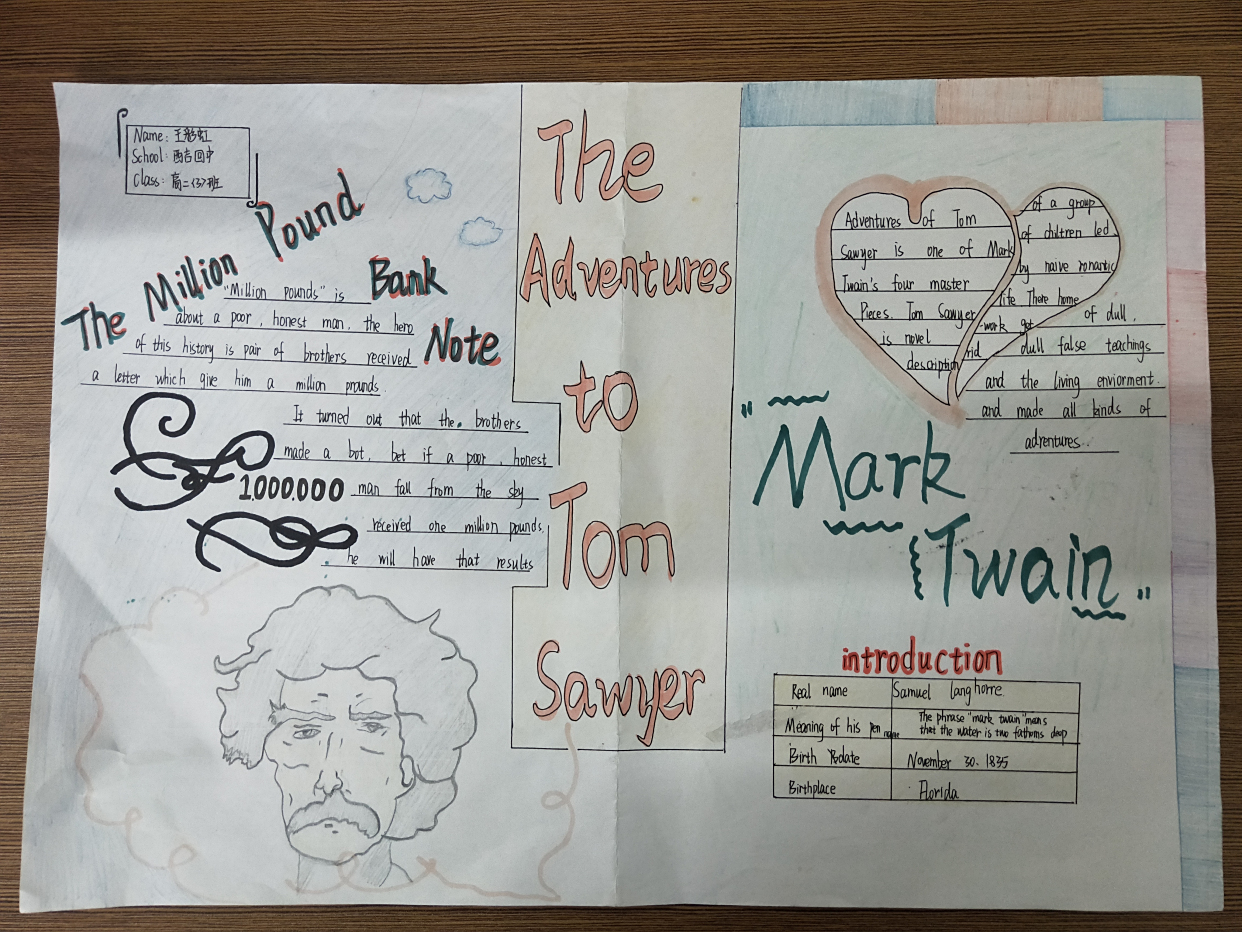 Name: 王彩虹
School: 西吉回中
Class: 高二(3)班
The Million Pound
Bank
Note
"Million pounds" is
about a poor, honest man, the hero
of this history is pair of brothers received
a letter which give him a million prounds.
It turned out that the brothers
made a bot, bet if a poor, honest
1.000.000 man fall from the sky
received one million pounds,
he will have that results
The
Adventures
to
Tom
Sawyer
Adventures of Tom
Sawyer is one of Mark
Twain's four master
Pieces. Tom Sawyer
is novel
description
of a group
of chiltren led
by naive romantic
life There home
work got of dull,
rid dull false teachings
and the living enviorment.
and made all kinds of
adrentures.
"Mark
Twain"
introduction
Real name Samuel langhorre
Meaning of his pen name The phrase "mark twain" mans
that the water is two fathoms deep
Birth date November 30. 1835
Birthplace Florida